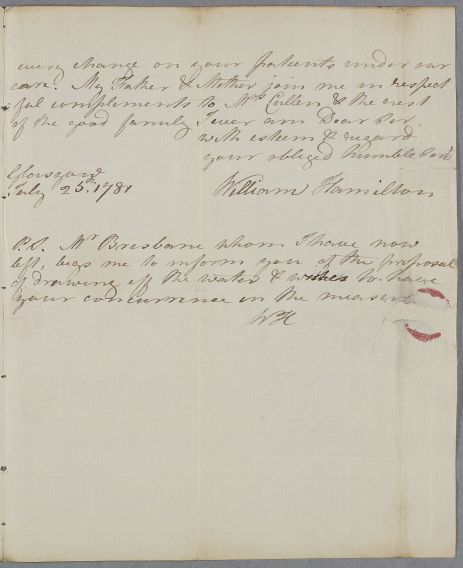 every change on your patients under our
care. My Father & Mother join me in respect
ful complements to Mrs Cullen & the rest
of the good family I ever am Dear Sir.
with esteem & regard
your obliged humble Servt
Glasgow
July 25th. 1781
William Hamilton
P.S. Mr Brisbane whom I have now
left, begs me to inform you of the proposal
of drawing off the water & wishes to have
your concurrence in the measure
WH